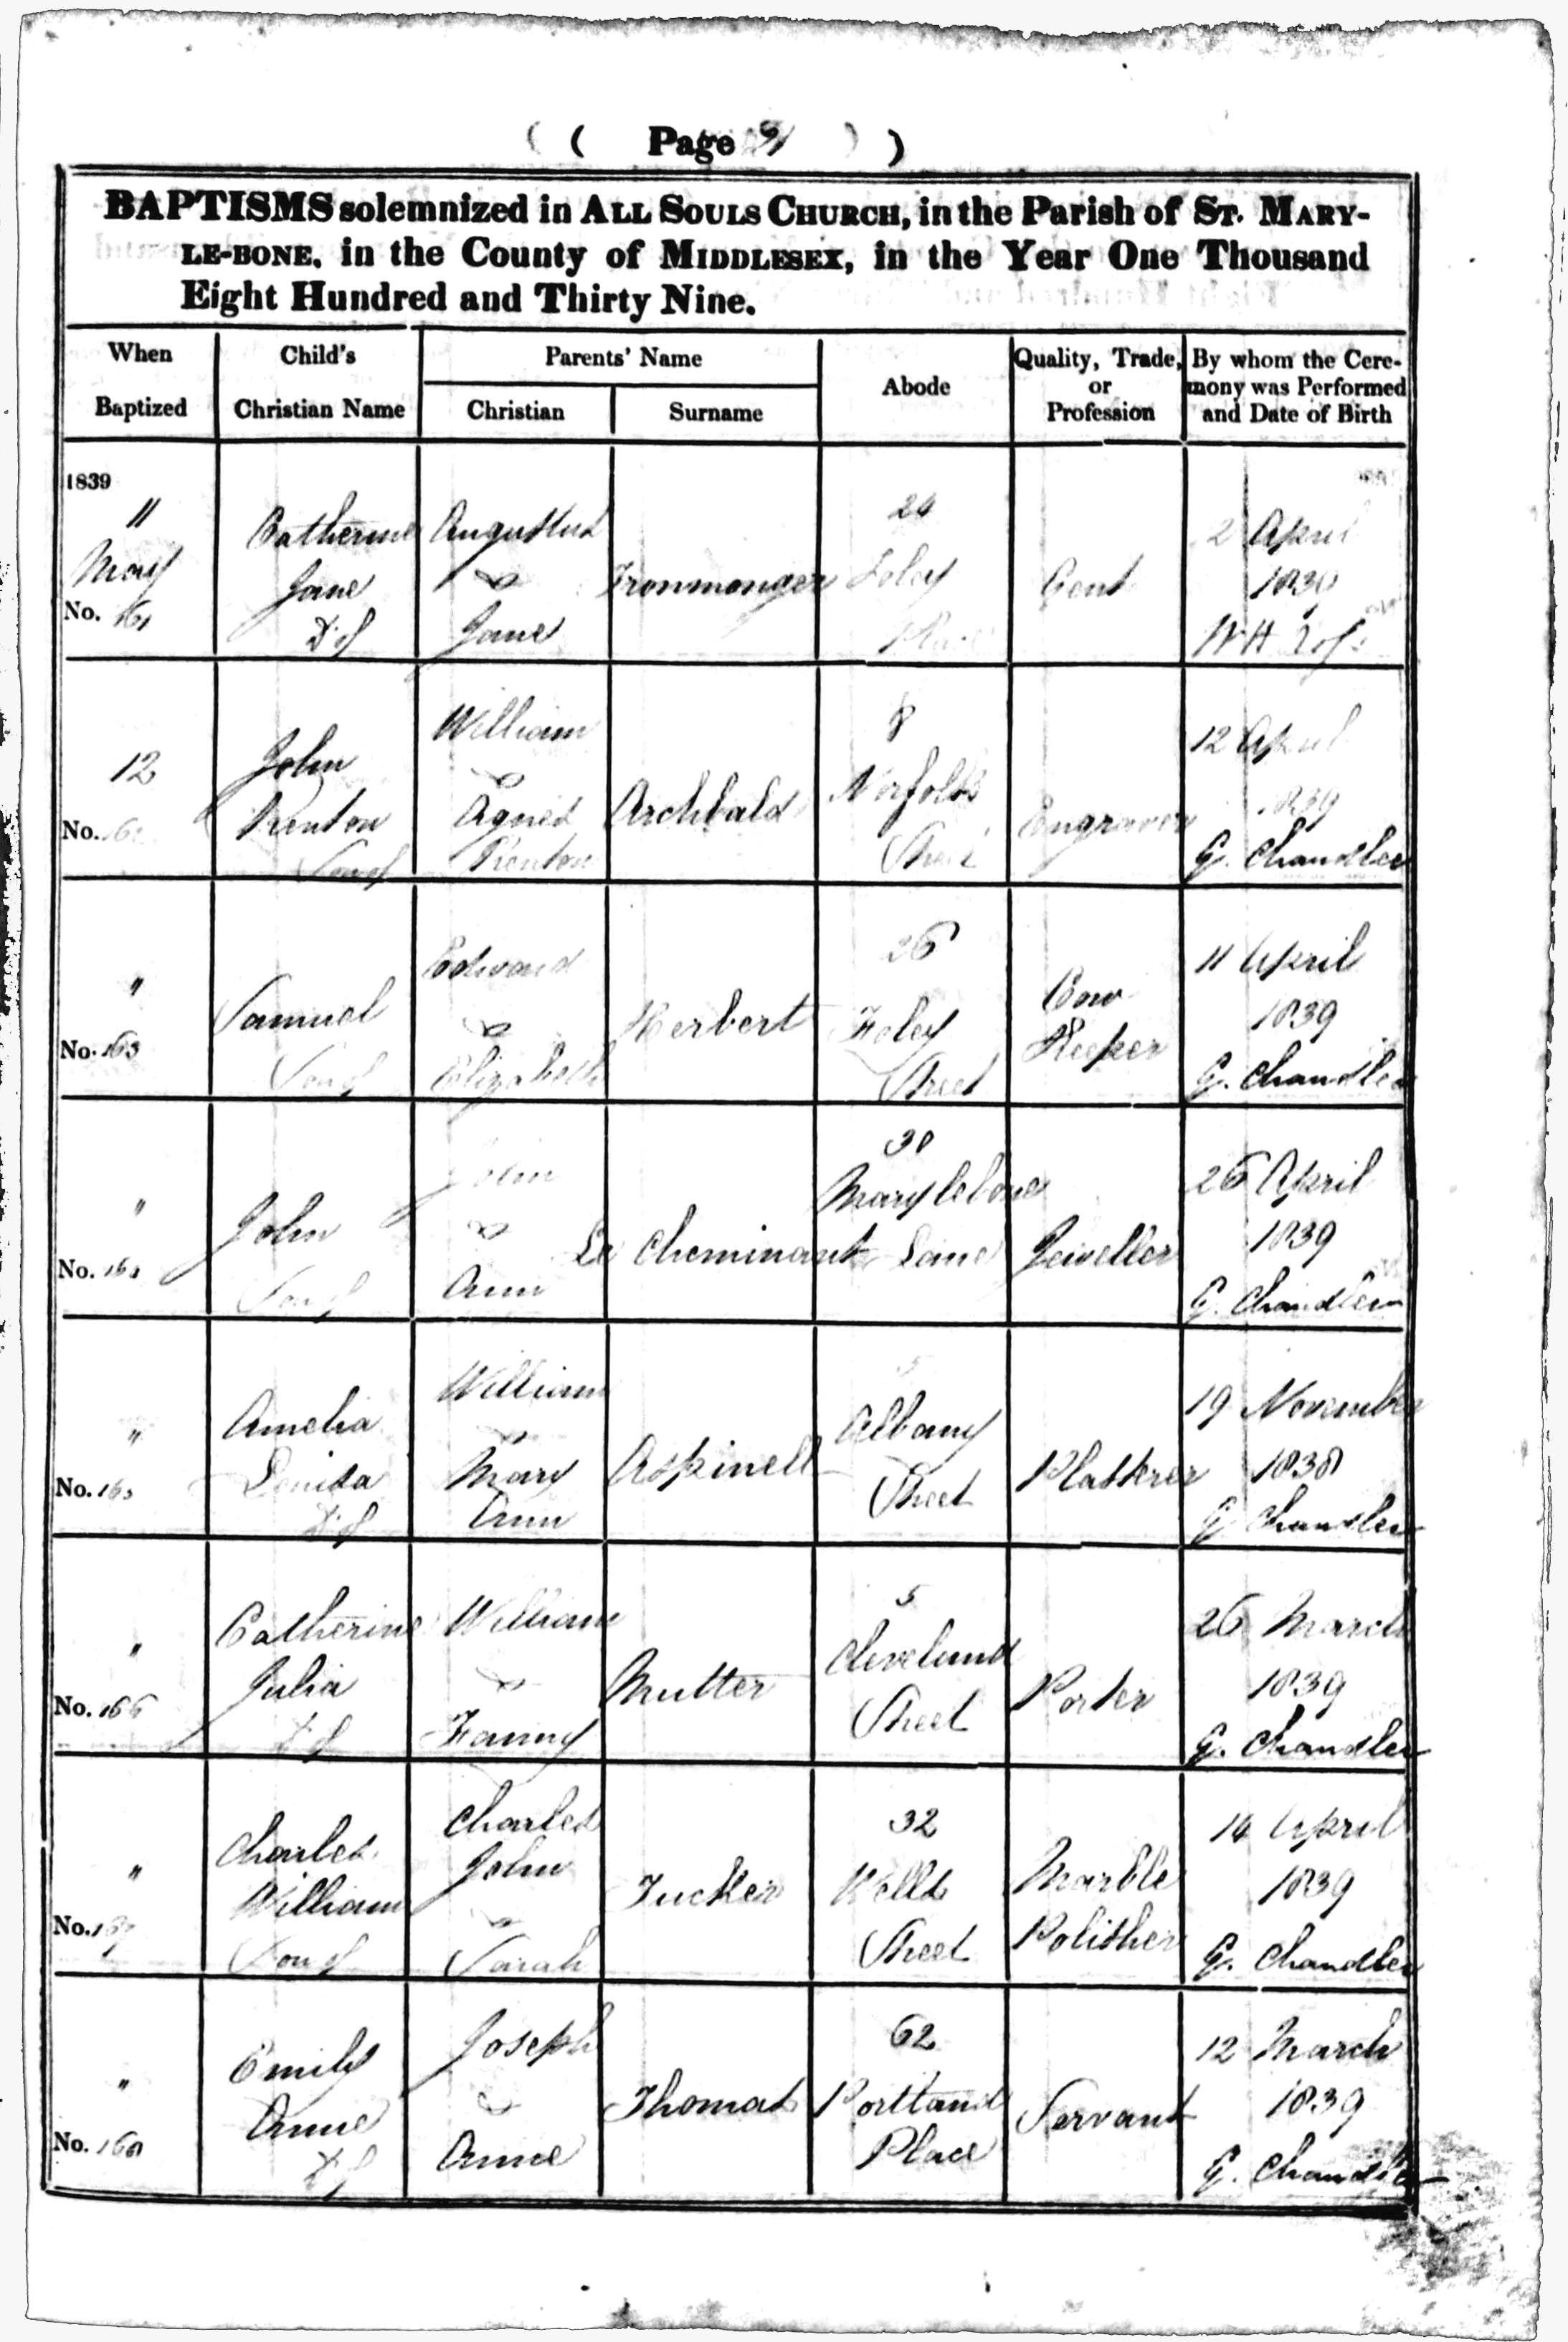 ( ( Page ) )
BAPTISMS solemnized in ALL SOULS CHURCH, in the Parish of ST. MARY-
LE-BONE, in the County of MIDDLESEX, in the Year One Thousand
Eight Hundred and Thirty Nine.
When
Baptized
Child's
Christian Name
Parents' Name
Christian
Surname
Abode
Quality, Trade,
or
Profession
By whom the Cere-
mony was Performed
and Date of Birth
1839
11
May
No. 161
Catherine
Jane
D of
Augustus
&
Jane
Ironmonger
24
Foley
Place
Gent
2 April
1839
12
No. 162
John
Renton
Son of
William
&
Agnes
Renton
Archbald
8
Norfolk
Street
Engraver
12 April
1839
G. Chandler
"
No. 163
Samuel
Son of
Edward
&
Elizabeth
Herbert
26
Foley
Street
Cow
Keeper
11 April
1839
G. Chandler
"
No. 164
John
Son of
John
&
Ann
Le Cheminant
30
Marylebone
Lane
Jeweller
26 April
1839
G. Chandler
"
No. 165
Amelia
Louisa
D of
William
&
Mary
Ann
Aspinell
5
Albany
Street
Plasterer
19 November
1838
G Chandler
"
No. 166
Catherine
Julia
D of
William
&
Fanny
Mutter
5
Cleveland
Street
Porter
26 March
1839
G. Chandler
"
No. 167
Charles
William
Son of
Charles
John
&
Sarah
Tucker
32
Wells
Street
Marble
Polisher
14 April
1839
G. Chandler
"
No. 168
Emily
Anne
D of
Joseph
&
Anne
Thomas
62
Portland
Place
Servant
12 March
1839
G. Chandler